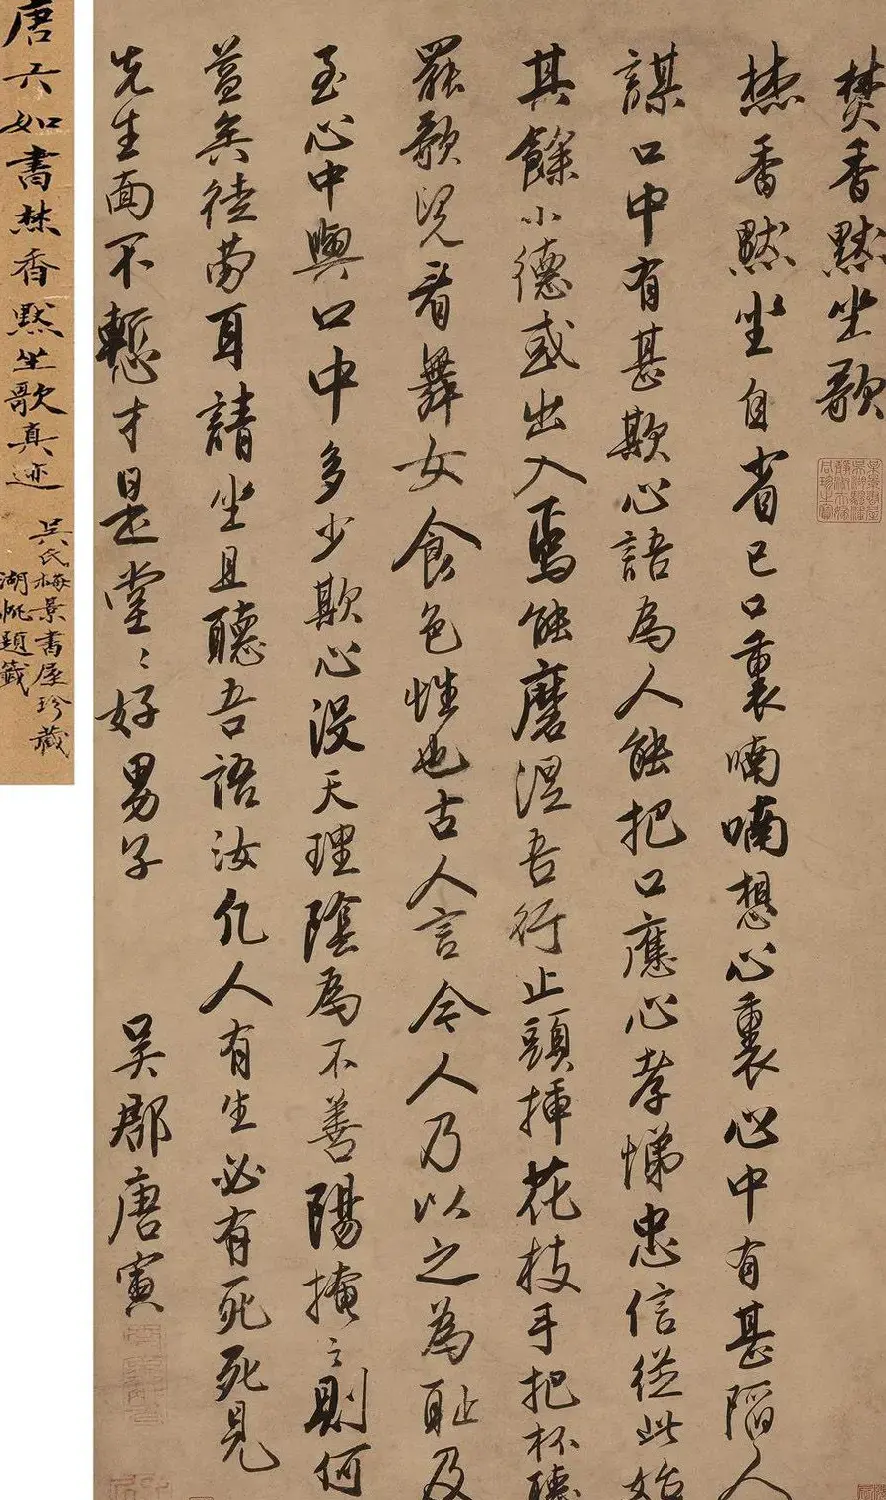 焚香默坐歌
焚香默坐自省己口裏喃喃想心裏心中有甚陷人
謀口中有甚欺心語為人能把口應心孝悌忠信從此始
其餘小德或出入焉能磨涅吾行止頭插花枝手把杯聽
罷歌兒看舞女食色性也古人言今人乃以之為恥及
至心中與口中多少欺心沒天理陰為不善陽掩之則何
益矣徒勞耳請坐且聽吾語汝凡人有生必有死死見
先生面不慚才是堂〻好男子
吳郡唐寅
唐六如書焚香默坐歌真迹
吳氏梅景書屋珍藏
湖帆題籤